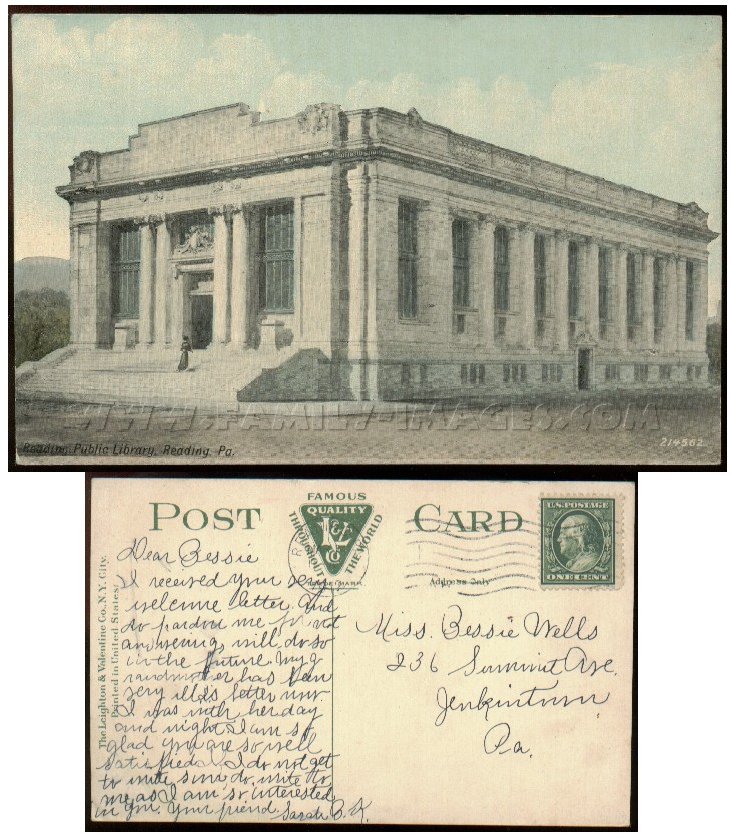 WWW.FAMILY-IMAGES.COM
Reading Public Library, Reading, Pa.
214562
POST CARD
FAMOUS
QUALITY
THROUGHOUT THE WORLD
L & V Co
TRADE MARK
U.S. POSTAGE
ONE CENT
Address Only
The Leighton & Valentine Co., N.Y. City.
Printed in United States.
Dear Bessie
I received your very
welcome letter. And
do pardon me for not
answering, will do so
in the future. My g
randmother has been
very ill is better now
I was with her day
and night I am so
glad you are so well
satisfied. I do not get
to write, soon do write to
me as I am so interested
in you. Your friend Sarah B. K.
Miss. Bessie Wells
236 Summit Ave.
Jenkintown
Pa.